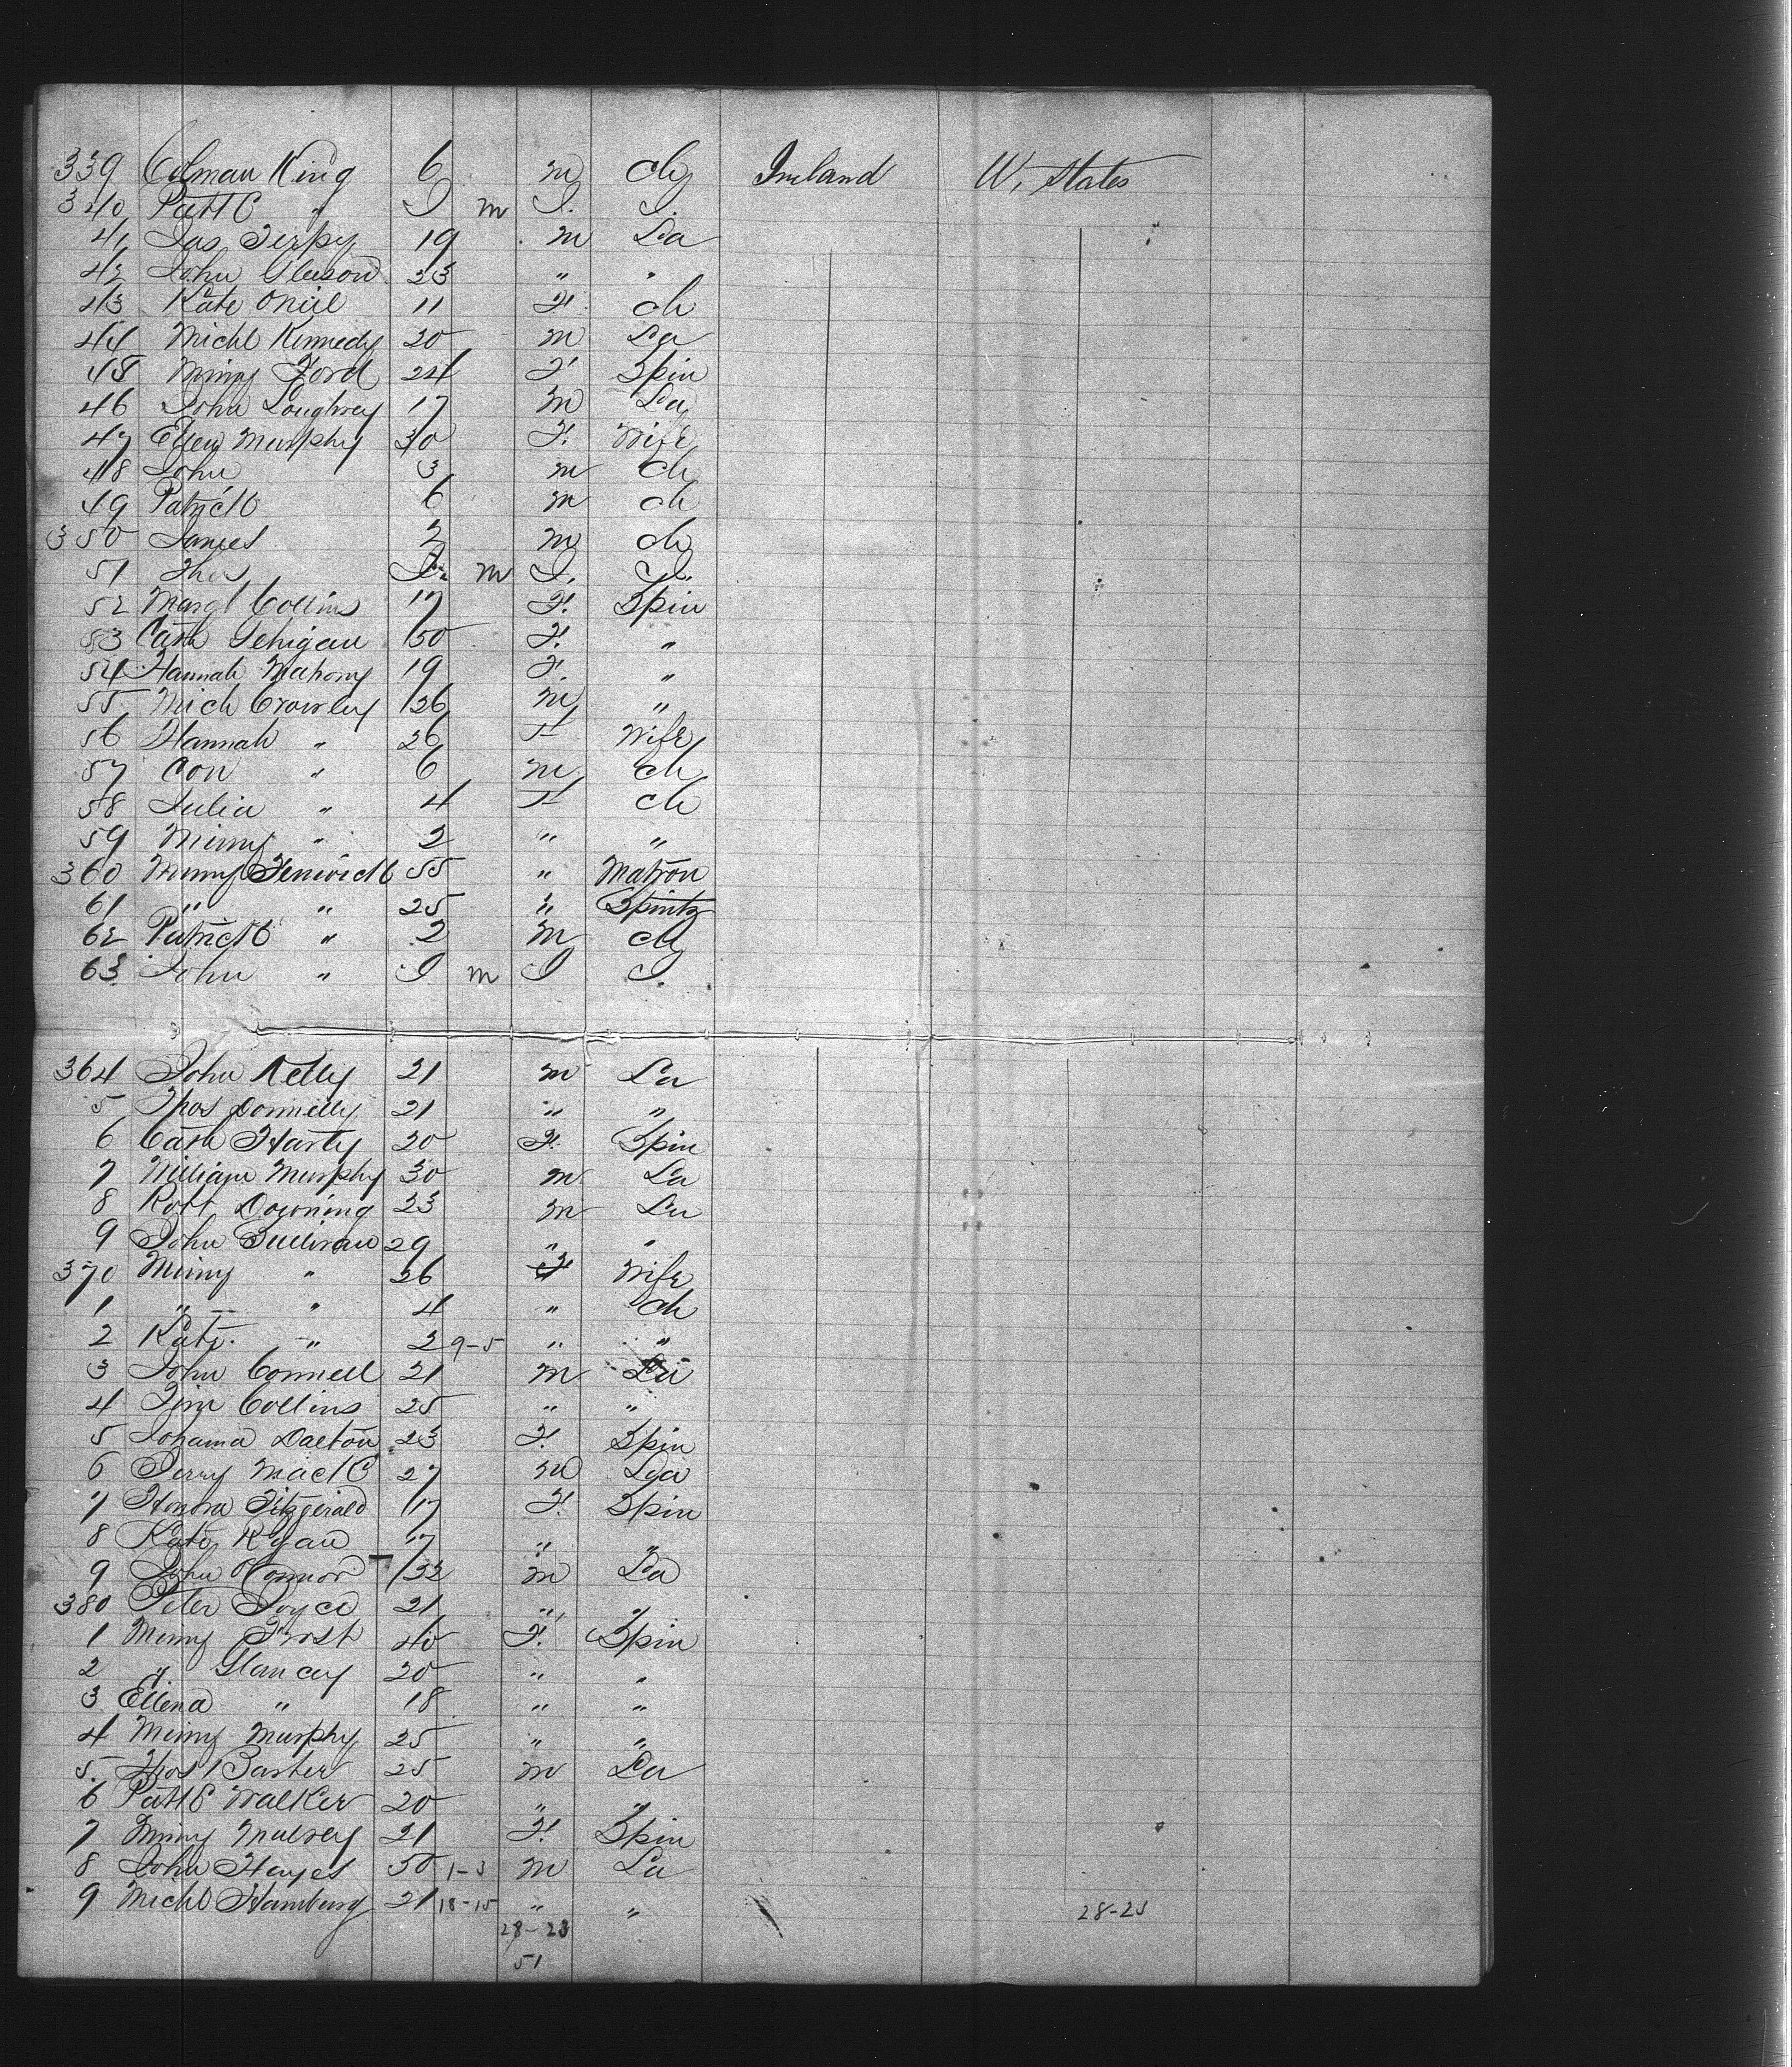 339 Colman King 6 m ch Ireland U. States
340 Pattk " I m I. I.
41 Jas Terpy 19 m La
42 John Gleeson 23 " "
43 Kate Oneil 11 F. ch
44 Michl Kennedy 20 m La
45 Minny Ford 24 F Spin
46 John Loughrey 17 m La
47 Ellen Murphy 30 F. Wife
48 John 3 m ch
49 Patrick 6 m ch
350 James 2 m ch
51 Thos I. m I. I.
52 Margt Collins 17 F. Spin
53 Cath Gehigan 50 F. "
54 Hannah Mahony 19 F. "
55 Mich Crowley 26 m "
56 Hannah " 26 F Wife
57 Con " 6 m ch
58 Julia " 4 F ch
59 Minny " 2 " "
360 Minny Fenwick 55 " Matron
61 " " 25 "
62 Patrick " 2 m ch
63 John " I m I I.
364 John Kelly 21 m La
5 Thos Donnelly 21 " "
6 Cath Harty 20 F. Spin
7 William Murphy 30 m La
8 Robt Downing 23 m La
9 John Sullivan 29 " "
370 Minny " 26 F Wife
1 " " 4 " ch
2 Kate " 2 9-5 " "
3 John Connell 21 m La
4 Tim Collins 25 " "
5 Johanna Dalton 23 F. Spin
6 Jerry Mack 27 m La
7 Honora Fitzgerald 17 F. Spin
8 Kate Ryan 17 " "
9 John OConnor 32 m La
380 Peter Joyce 21 " "
1 Minny Frost 40 F. Spin
2 " Glancey 20 " "
3 Ellena " 18 " "
4 Minny Murphy 25 " "
5 Thos Baxter 25 m La
6 Pattk Walker 20 " "
7 Minny Mulvey 21 F. Spin
8 John Hayes 50 1-3 m La
9 Michl Hamburg 21 18-15 " " 28-23
28-23
51